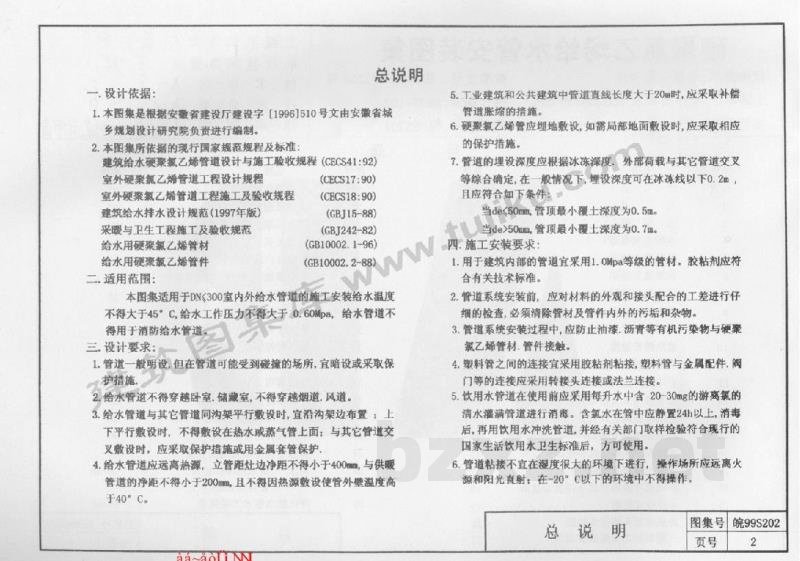 总说明
一.设计依据:
1.本图集是根据安徽省建设厅建设字 [1996]510号文由安徽省城
乡规划设计研究院负责进行编制。
2.本图集所依据的现行国家规范规程及标准:
建筑给水硬聚氯乙烯管道设计与施工验收规程 (CECS41:92)
室外硬聚氯乙烯管道工程设计规程 (CECS17:90)
室外硬聚氯乙烯管道工程施工及验收规程 (CECS18:90)
建筑给水排水设计规范(1997年版) (GBJ15-88)
采暖与卫生工程施工及验收规范 (GBJ242-82)
给水用硬聚氯乙烯管材 (GB10002.1-96)
给水用硬聚氯乙烯管件 (GB10002.2-88)
二.适用范围:
本图集适用于DN≤300室内外给水管道的施工安装给水温度
不得大于45° C,给水工作压力不得大于 0.60Mpa, 给水管道不
得用于消防给水管道。
三.设计要求:
1.管道一般明设,但在管道可能受到碰撞的场所,宜暗设或采取保
护措施.
2.给水管道不得穿越卧室.储藏室,不得穿越烟道.风道。
3.给水管道与其它管道同沟架平行敷设时,宜沿沟架边布置 ; 上
下平行敷设时, 不得敷设在热水或蒸气管上面; 与其它管道交
叉敷设时, 应采取保护措施或用金属套管保护.
4.给水管道应远离热源, 立管距灶边净距不得小于400mm,与供暖
管道的净距不得小于200mm,且不得因热源敷设使管外壁温度高
于40° C。
5.工业建筑和公共建筑中管道直线长度大于20m时,应采取补偿
管道胀缩的措施。
6.硬聚氯乙烯管应埋地敷设,如需局部地面敷设时,应采取相应
的保护措施。
7.管道的埋设深度应根据冰冻深度. 外部荷载与其它管道交叉
等综合确定,在一般情况下,埋设深度可在冰冻线以下0.2m ,
且应符合如下条件:
当de≤50mm,管顶最小覆土深度为0.5m。
当de>50mm,管顶最小覆土深度为0.7m。
四.施工安装要求:
1.用于建筑内部的管道宜采用1.0Mpa等级的管材。胶粘剂应符
合有关技术标准。
2.管道系统安装前, 应对材料的外观和接头配合的工差进行仔
细的检查,必须清除管材及管件内外的污垢和杂物。
3.管道系统安装过程中,应防止油漆.沥青等有机污染物与硬聚
氯乙烯管材.管件接触。
4.塑料管之间的连接宜采用胶粘剂粘接,塑料管与金属配件.阀
门等的连接应采用转接头连接或法兰连接。
5.饮用水管道在使用前应采用每升水中含 20-30mg的游离氯的
清水灌满管道进行消毒。含氯水在管中应静置24h以上,消毒
后,再用饮用水冲洗管道,并经有关部门取样检验符合现行的
国家生活饮用水卫生标准后, 方可使用。
6.管道粘接不宜在湿度很大的环境下进行, 操作场所应远离火
源和阳光直射; 在-20° C以下的环境中不得操作。
总 说 明
图集号 皖99S202
页号 2
建筑图集库 www.tujiku.com